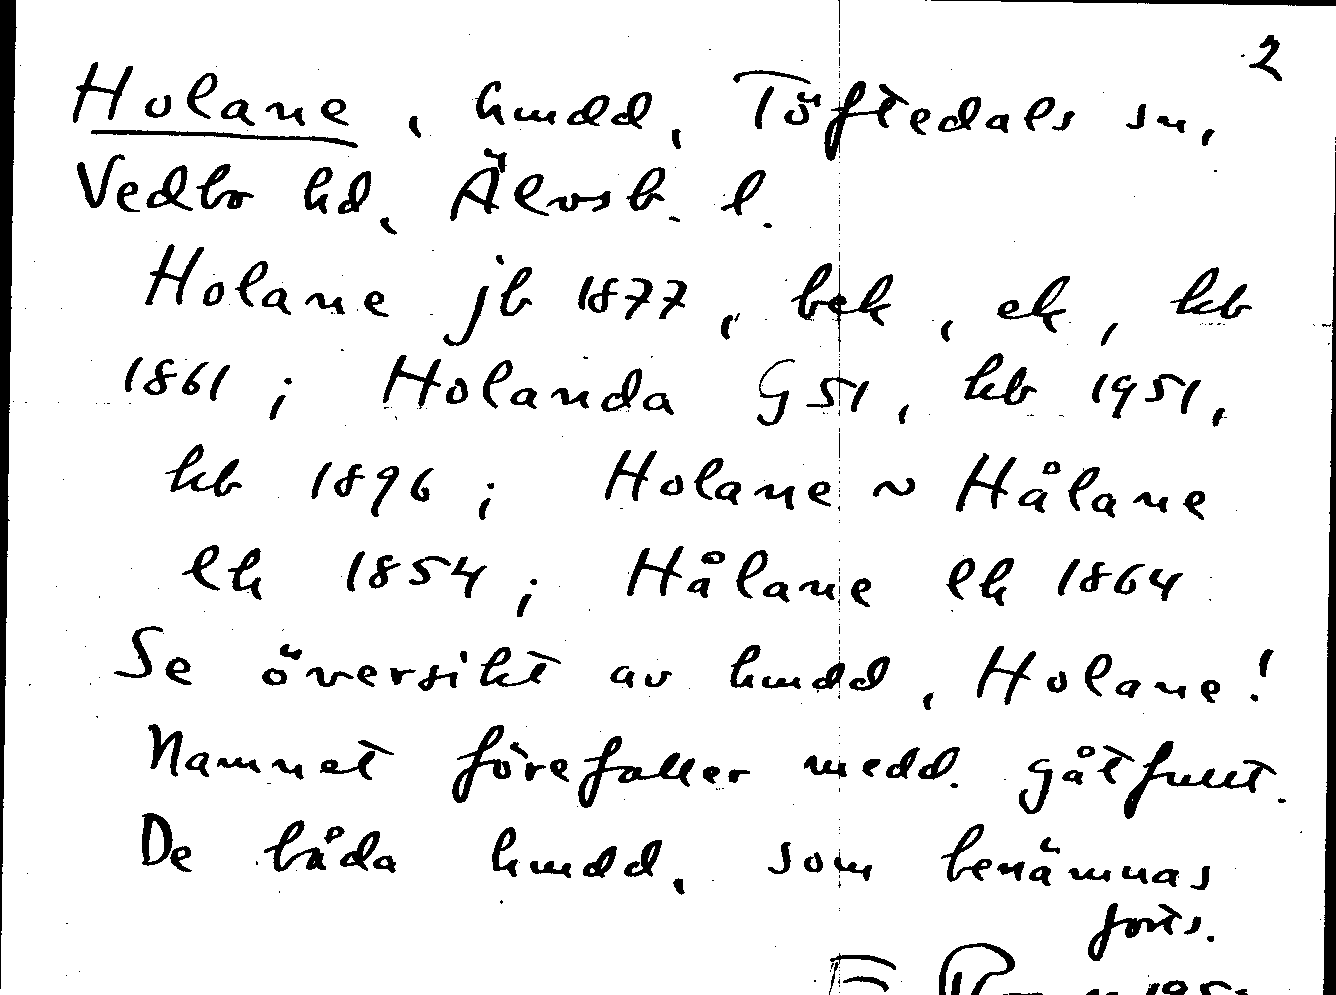 2
Holane, hmdd, Töftedals sn,
Vedbo hd, Älvsb. l.
Holane jb 1877, bek, ek, kb
1861; Holanda G51, kb 1951,
hb 1896; Holane ~ Hålane
lk 1854; Hålane lk 1864
Se översikt av hmdd, Holane!
Namnet förefaller medd. gåtfullt.
De båda hmdd, som benämnas
forts.